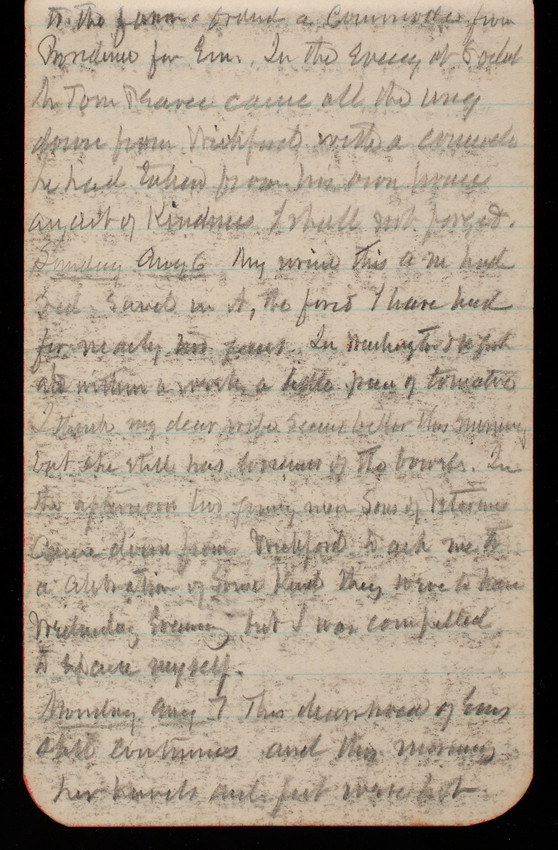 to the farm & ordered a Commode from
Providence for Em. In the Evening at 8 oclock
Mr Tom Pearce came all the way
down from Wickford with a comode
he had taken from his own house
an act of Kindness I shall not forget.
Sunday Aug 6 My urine this a m had
red sand in it, the first I have had
for nearly two years. In Washington I
ate within a week, a little piece of tomatoe
I think my dear wife seems better this morning
but she still has looseness of the bowels. In
the afternoon two young men Sons of Veterans
Came down from Wickford to ask me to
a Celebration of Some Kind they were to have
Wednesday Evening but I was compelled
to Excuse myself.
Monday Aug 7 This diarrhoea of Ems
still continues and this morning
her hands and feet were hot